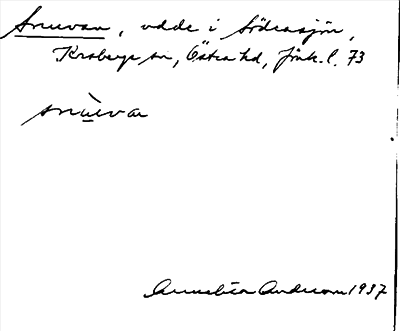 Snuvan, udde i Södrasjön,
Kråkerge sn, Östra hd, Jönk. l. 73
snùvan
Annelisa Anderson 1937